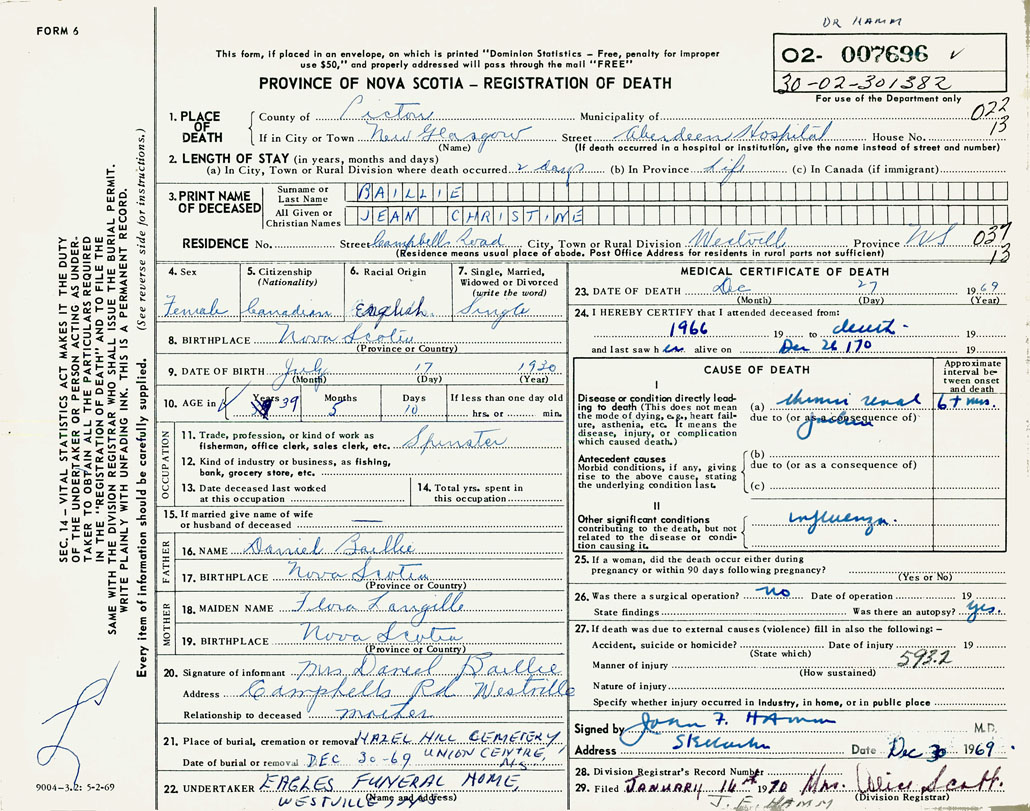 DR HAMM
FORM 6
02- 007696
30-02-301382
For use of the Department only
This form, if placed in an envelope, on which is printed "Dominion Statistics – Free, penalty for improper
use $50," and properly addressed will pass through the mail "FREE"
PROVINCE OF NOVA SCOTIA – REGISTRATION OF DEATH
1. PLACE OF DEATH
County of Pictou Municipality of 022
If in City or Town New Glasgow Street Aberdeen Hospital House No. 13
(Name) (If death occurred in a hospital or institution, give the name instead of street and number)
2. LENGTH OF STAY (in years, months and days)
(a) In City, Town or Rural Division where death occurred 2 days (b) In Province Life (c) In Canada (if immigrant)
3. PRINT NAME OF DECEASED
Surname or Last Name BAILLIE
All Given or Christian Names JEAN CHRISTINE
RESIDENCE No. Street Campbells Road City, Town or Rural Division Westvill Province NS 037
(Residence means usual place of abode. Post Office Address for residents in rural parts not sufficient) 13
4. Sex Female
5. Citizenship (Nationality) Canadian
6. Racial Origin English
7. Single, Married, Widowed or Divorced (write the word) Single
8. BIRTHPLACE Nova Scotia
(Province or Country)
9. DATE OF BIRTH July 17 1930
(Month) (Day) (Year)
10. AGE in Years 39 Months 5 Days 10 If less than one day old
hrs. or min.
OCCUPATION
11. Trade, profession, or kind of work as
fisherman, office clerk, sales clerk, etc. Spinster
12. Kind of industry or business, as fishing,
bank, grocery store, etc.
13. Date deceased last worked
at this occupation
14. Total yrs. spent in
this occupation
15. If married give name of wife
or husband of deceased —
FATHER
16. NAME Daniel Baillie
17. BIRTHPLACE Nova Scotia
(Province or Country)
MOTHER
18. MAIDEN NAME Flora Langille
19. BIRTHPLACE Nova Scotia
(Province or Country)
20. Signature of informant Mrs Daniel Baillie
Address Campbells Rd Westville
Relationship to deceased mother
21. Place of burial, cremation or removal HAZEL HILL CEMETERY
UNION CENTRE, NS
Date of burial or removal DEC 30-69
22. UNDERTAKER EAGLES FUNERAL HOME,
WESTVILLE
(Name and Address)
MEDICAL CERTIFICATE OF DEATH
23. DATE OF DEATH Dec 27 1969
(Month) (Day) (Year)
24. I HEREBY CERTIFY that I attended deceased from:
1966 19 to death 19
and last saw her alive on Dec 26 170 19
CAUSE OF DEATH
Approximate interval between onset and death
I
Disease or condition directly leading
to death (This does not mean
the mode of dying, e.g., heart failure,
asthenia, etc. It means the
disease, injury, or complication
which caused death.)
(a) renal 6+ mos.
due to (or as a consequence of)
Antecedent causes
Morbid conditions, if any, giving
rise to the above cause, stating
the underlying condition last.
(b)
due to (or as a consequence of)
(c)
II
Other significant conditions
contributing to the death, but not
related to the disease or condition
causing it.
influenza.
25. If a woman, did the death occur either during
pregnancy or within 90 days following pregnancy?
(Yes or No)
26. Was there a surgical operation? no Date of operation 19
State findings Was there an autopsy? yes.
27. If death was due to external causes (violence) fill in also the following: –
Accident, suicide or homicide? Date of injury 19
(State which)
Manner of injury 593.2
(How sustained)
Nature of injury
Specify whether injury occurred in Industry, in home, or in public place
Signed by John F. Hamm M.D.
Address Stellarton Date Dec 30 1969
28. Division Registrar's Record Number
29. Filed JANUARY 14th 1970 Mrs. Alice Scott.
(Division Registrar)
J. F. HAMM
SEC. 14 – VITAL STATISTICS ACT MAKES IT THE DUTY
OF THE UNDERTAKER OR PERSON ACTING AS UNDERTAKER
TO OBTAIN ALL THE PARTICULARS REQUIRED
IN THE "REGISTRATION OF DEATH" AND TO FILE THE
SAME WITH THE DIVISION REGISTRAR WHO SHALL ISSUE THE BURIAL PERMIT.
WRITE PLAINLY WITH UNFADING INK. THIS IS A PERMANENT RECORD.
Every item of information should be carefully supplied. (See reverse side for instructions.)
9004-3.2: 5-2-69